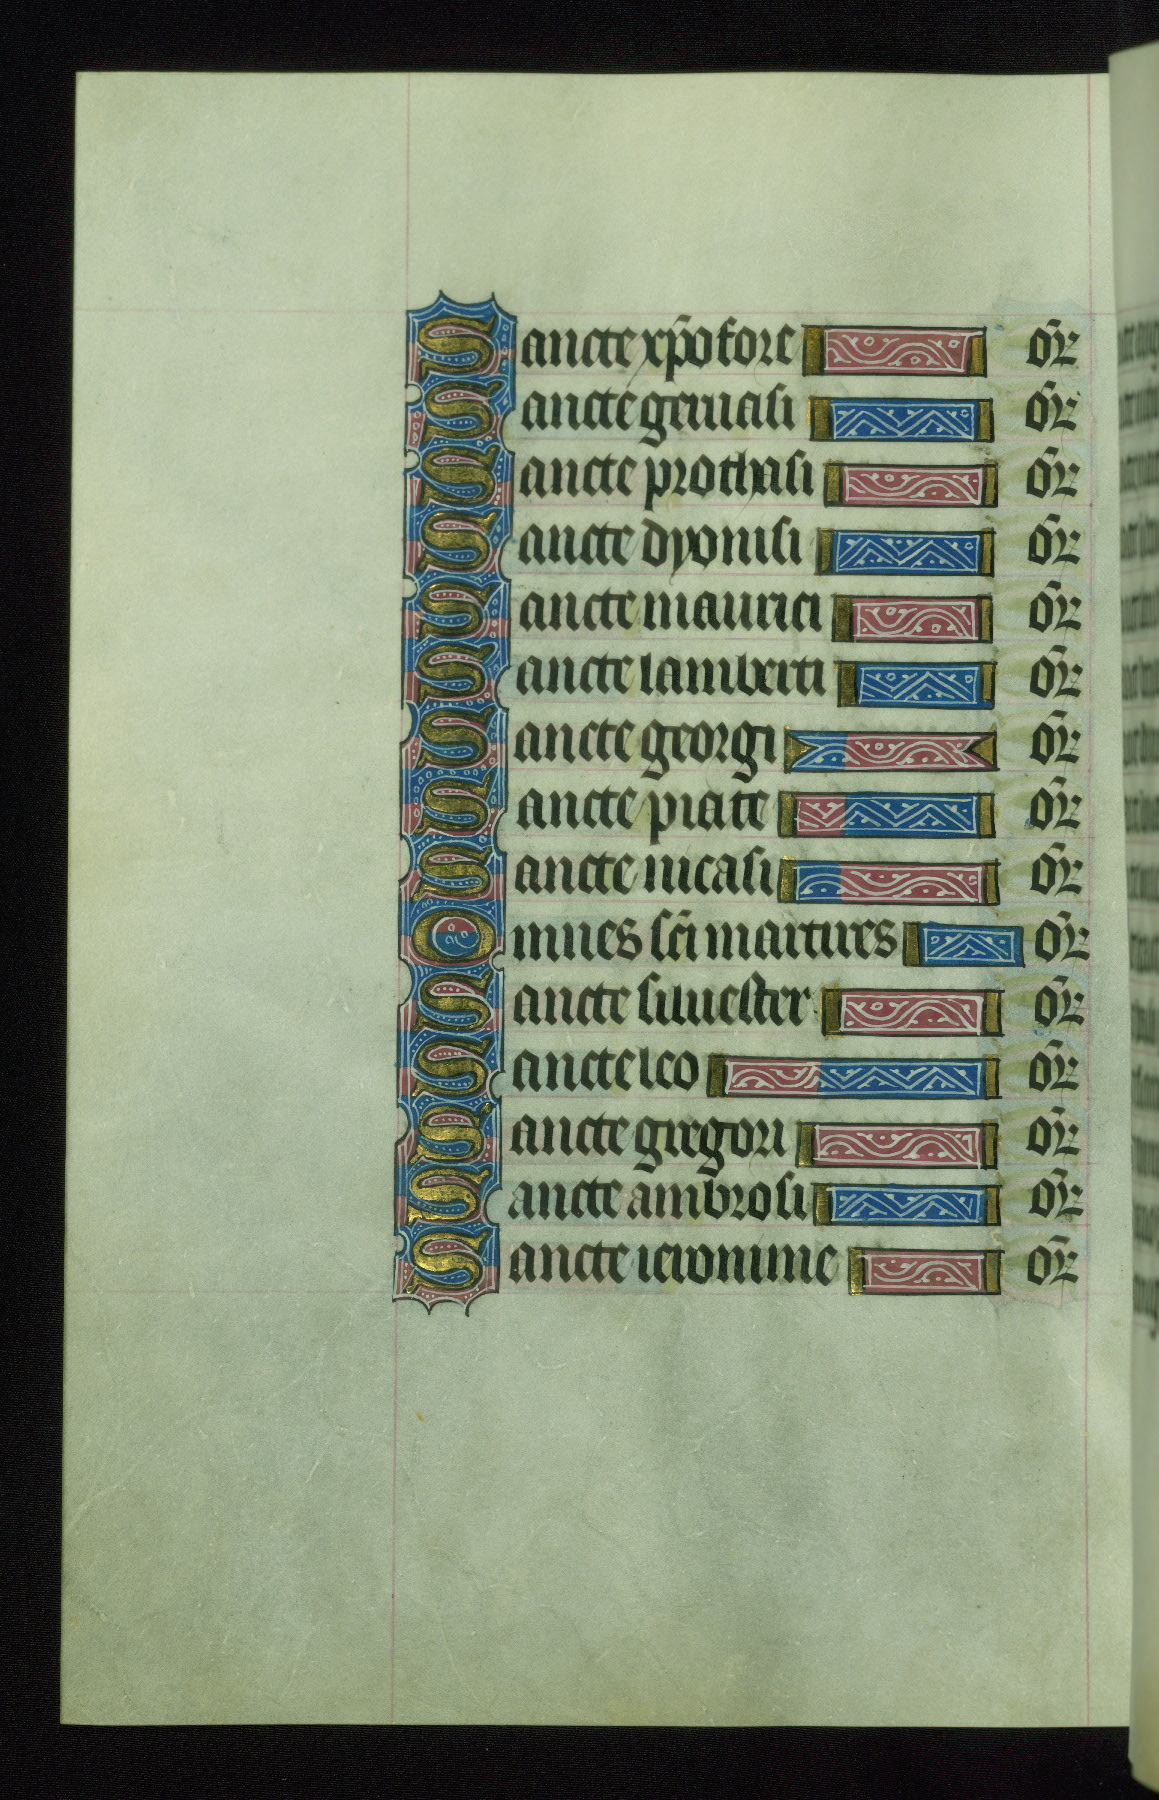 Sancte xp̄ofore or̄
Sancte geruasi or̄
Sancte prothasi or̄
Sancte dyonisi or̄
Sancte maurici or̄
Sancte lamberti or̄
Sancte georgi or̄
Sancte piate or̄
Sancte nicasi or̄
Omnes sc̄i martires or̄
Sancte siluester or̄
Sancte leo or̄
Sancte gregori or̄
Sancte ambrosi or̄
Sancte ieronime or̄